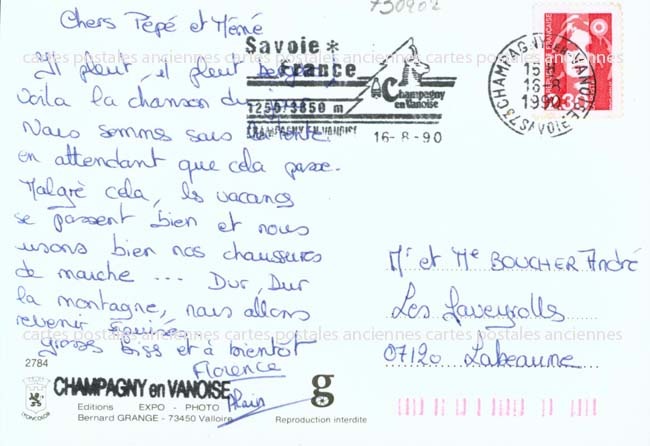 730902
Chers Pépé et Mémé
Il pleut, il pleut bergère
voilà la chanson du
Nous sommes sous la tente
en attendant que cela passe.
Malgré cela, les vacances
se passent bien et nous
usons bien nos chaussures
de marche ... Dur, Dur
la montagne, nous allons
revenir épuisés
grosses biss et à bientôt
Florence
Alain
Savoie *
France
1250/3850 m
CHAMPAGNY EN VANOISE
Champagny
en Vanoise
16-8-90
CHAMPAGNY-EN-VANOISE
16-8
1990
73 SAVOIE
2,30
Mr et Me BOUCHER André
Les Laveyrolls
07120 Labeaume
2784
CHAMPAGNY en VANOISE
Editions EXPO - PHOTO
Bernard GRANGE - 73450 Valloire
g
Reproduction interdite
cartes postales anciennes cartes postales anciennes cartes postales anciennes
cartes postales anciennes cartes postales anciennes cartes postales anciennes